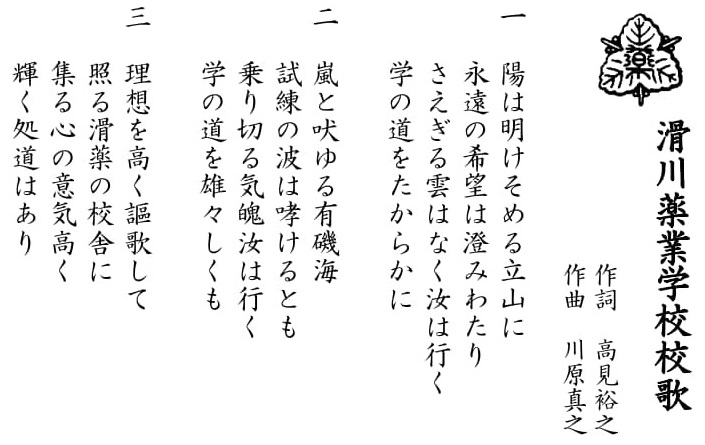 薬
滑川薬業学校校歌
作詞　高見裕之
作曲　川原真之
一
陽は明けそめる立山に
永遠の希望は澄みわたり
さえぎる雲はなく汝は行く
学の道をたからかに
二
嵐と吠ゆる有磯海
試練の波は哮けるとも
乗り切る気魄汝は行く
学の道を雄々しくも
三
理想を高く謳歌して
照る滑薬の校舎に
集る心の意気高く
輝く処道はあり